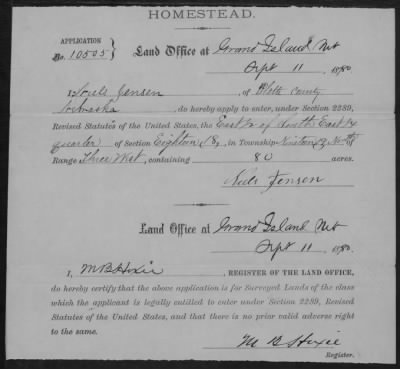 HOMESTEAD.
APPLICATION
No. 10505
Land Office at Grand Island Neb
Sept 11, 1880.
I, Niels Jensen, of Platte County
Nebraska, do hereby apply to enter, under Section 2289,
Revised Statutes of the United States, the East ½ of South East ¼
quarter of Section Eighteen 18, in Township Nineteen 19 North of
Range Three West, containing 80 acres.
Niels Jensen
Land Office at Grand Island Neb
Sept 11, 1880.
I, M B Hoxie, REGISTER OF THE LAND OFFICE,
do hereby certify that the above application is for Surveyed Lands of the class
which the applicant is legally entitled to enter under Section 2289, Revised
Statutes of the United States, and that there is no prior valid adverse right
to the same.
M B Hoxie
Register.